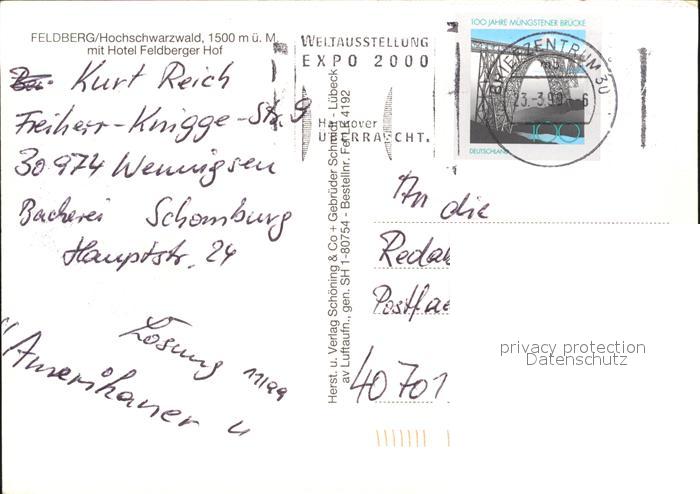 FELDBERG/Hochschwarzwald, 1500 m ü. M.
mit Hotel Feldberger Hof
Kurt Reich
Freiherr-Knigge-Str. 9
30974 Wennigsen
Bäckerei Schomburg
Hauptstr. 24
Lösung 11/99
"Amerikaner"
WELTAUSSTELLUNG
EXPO 2000
Hannover
ÜBERRASCHT.
100 JAHRE MÜNGSTENER BRÜCKE
BRIEFZENTRUM 30
23.-3.99
6
100
DEUTSCHLAND
Herst. u. Verlag Schöning & Co + Gebrüder Schmidt - Lübeck
av Luftaufn., gen. SH 1-80754 - Bestellnr. Fel L 4192
An die
Redak
Postfac
40701
privacy protection
Datenschutz